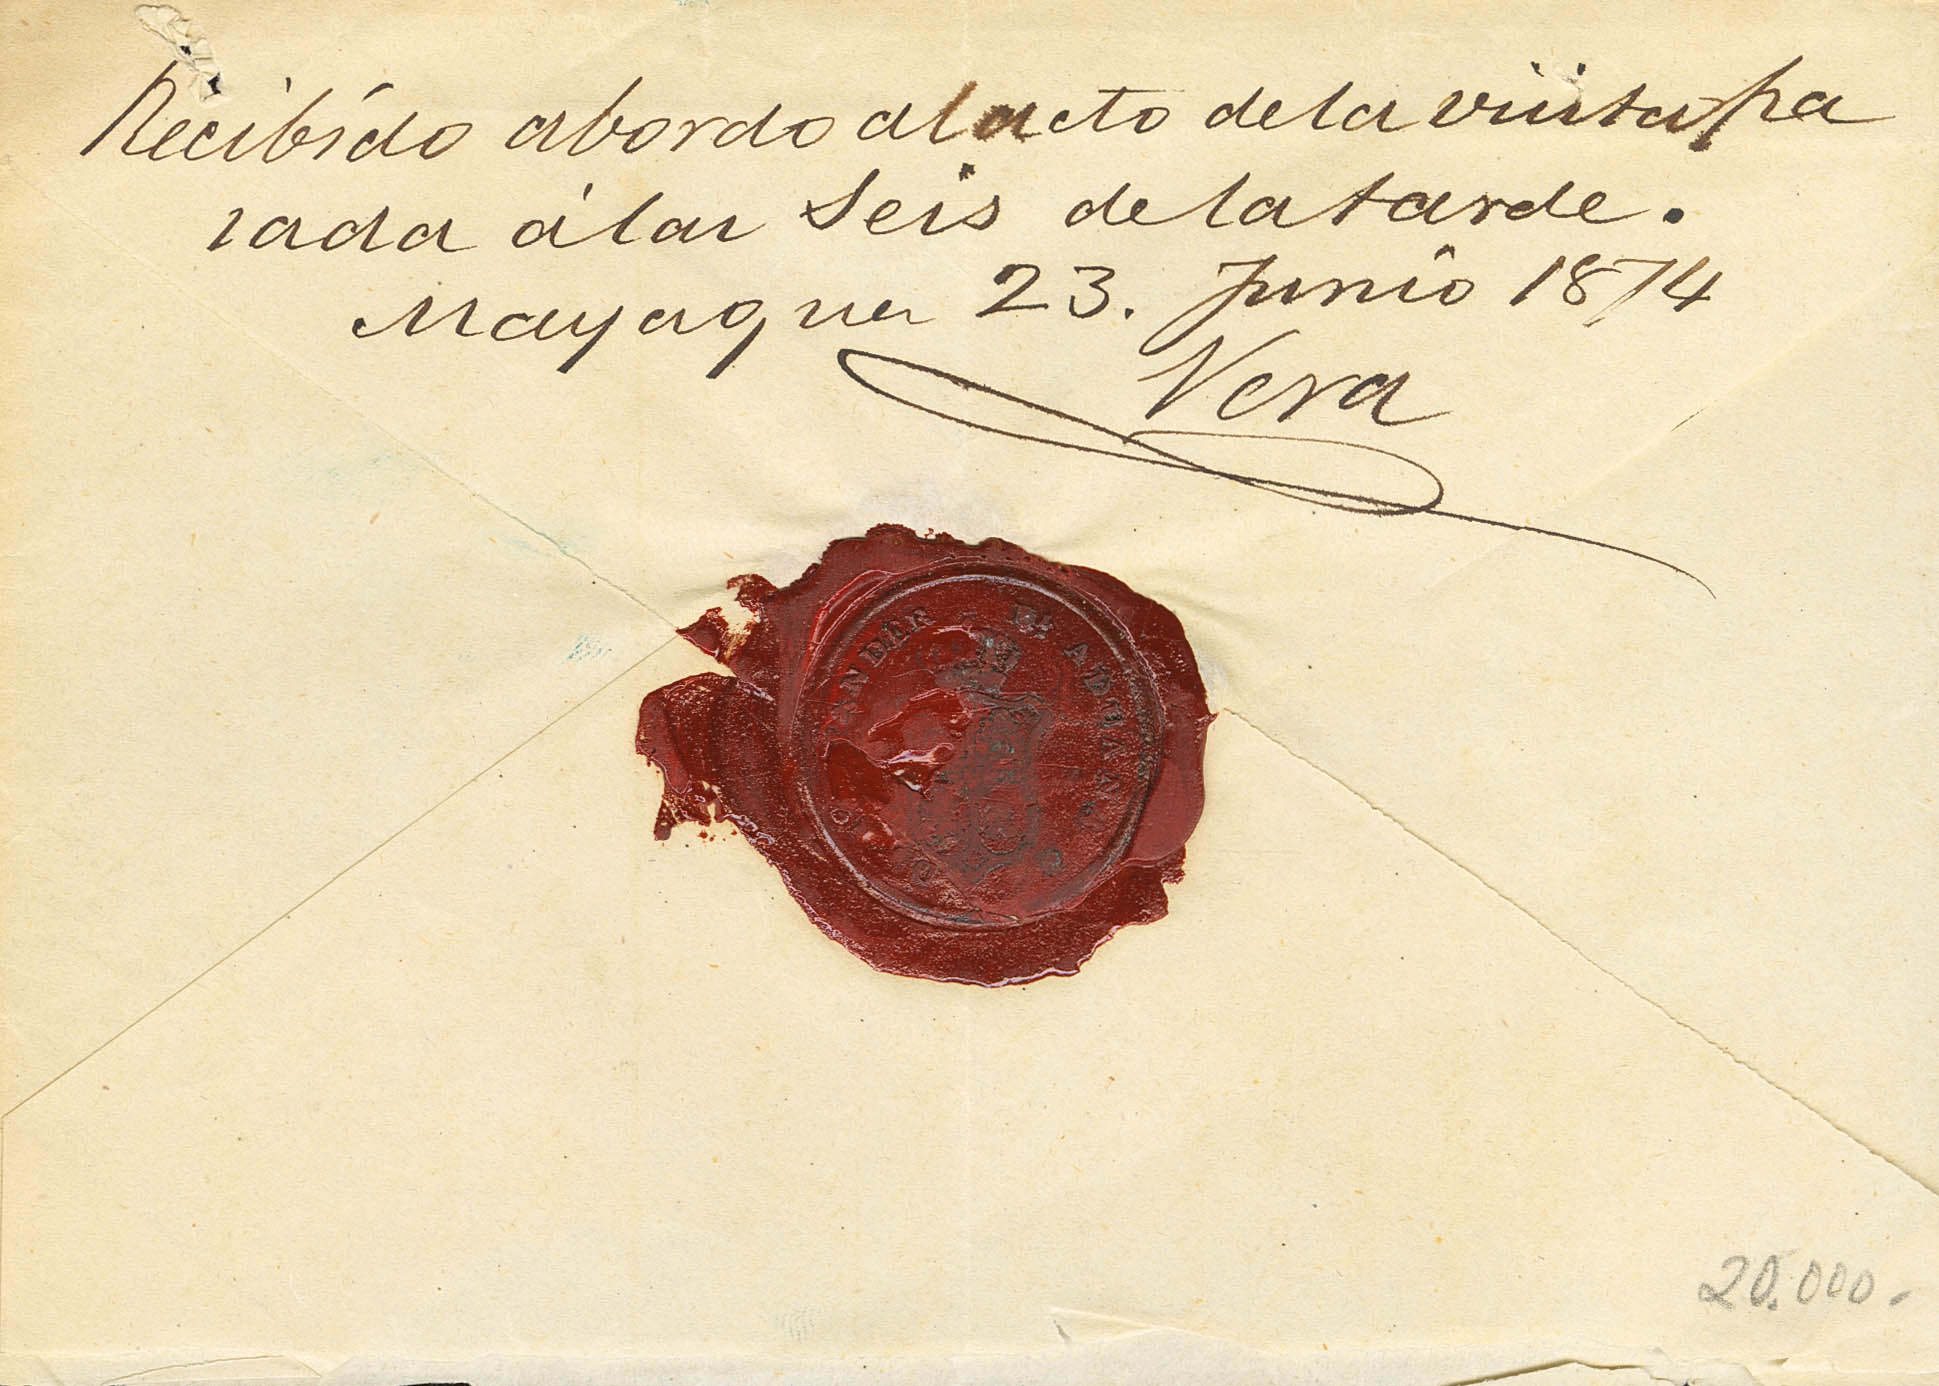 Recibido abordo al acto de la viista pa
sada á las Seis de la tarde.
Mayaguez 23. Junio 1874
Vera
ADUANA
20.000.-